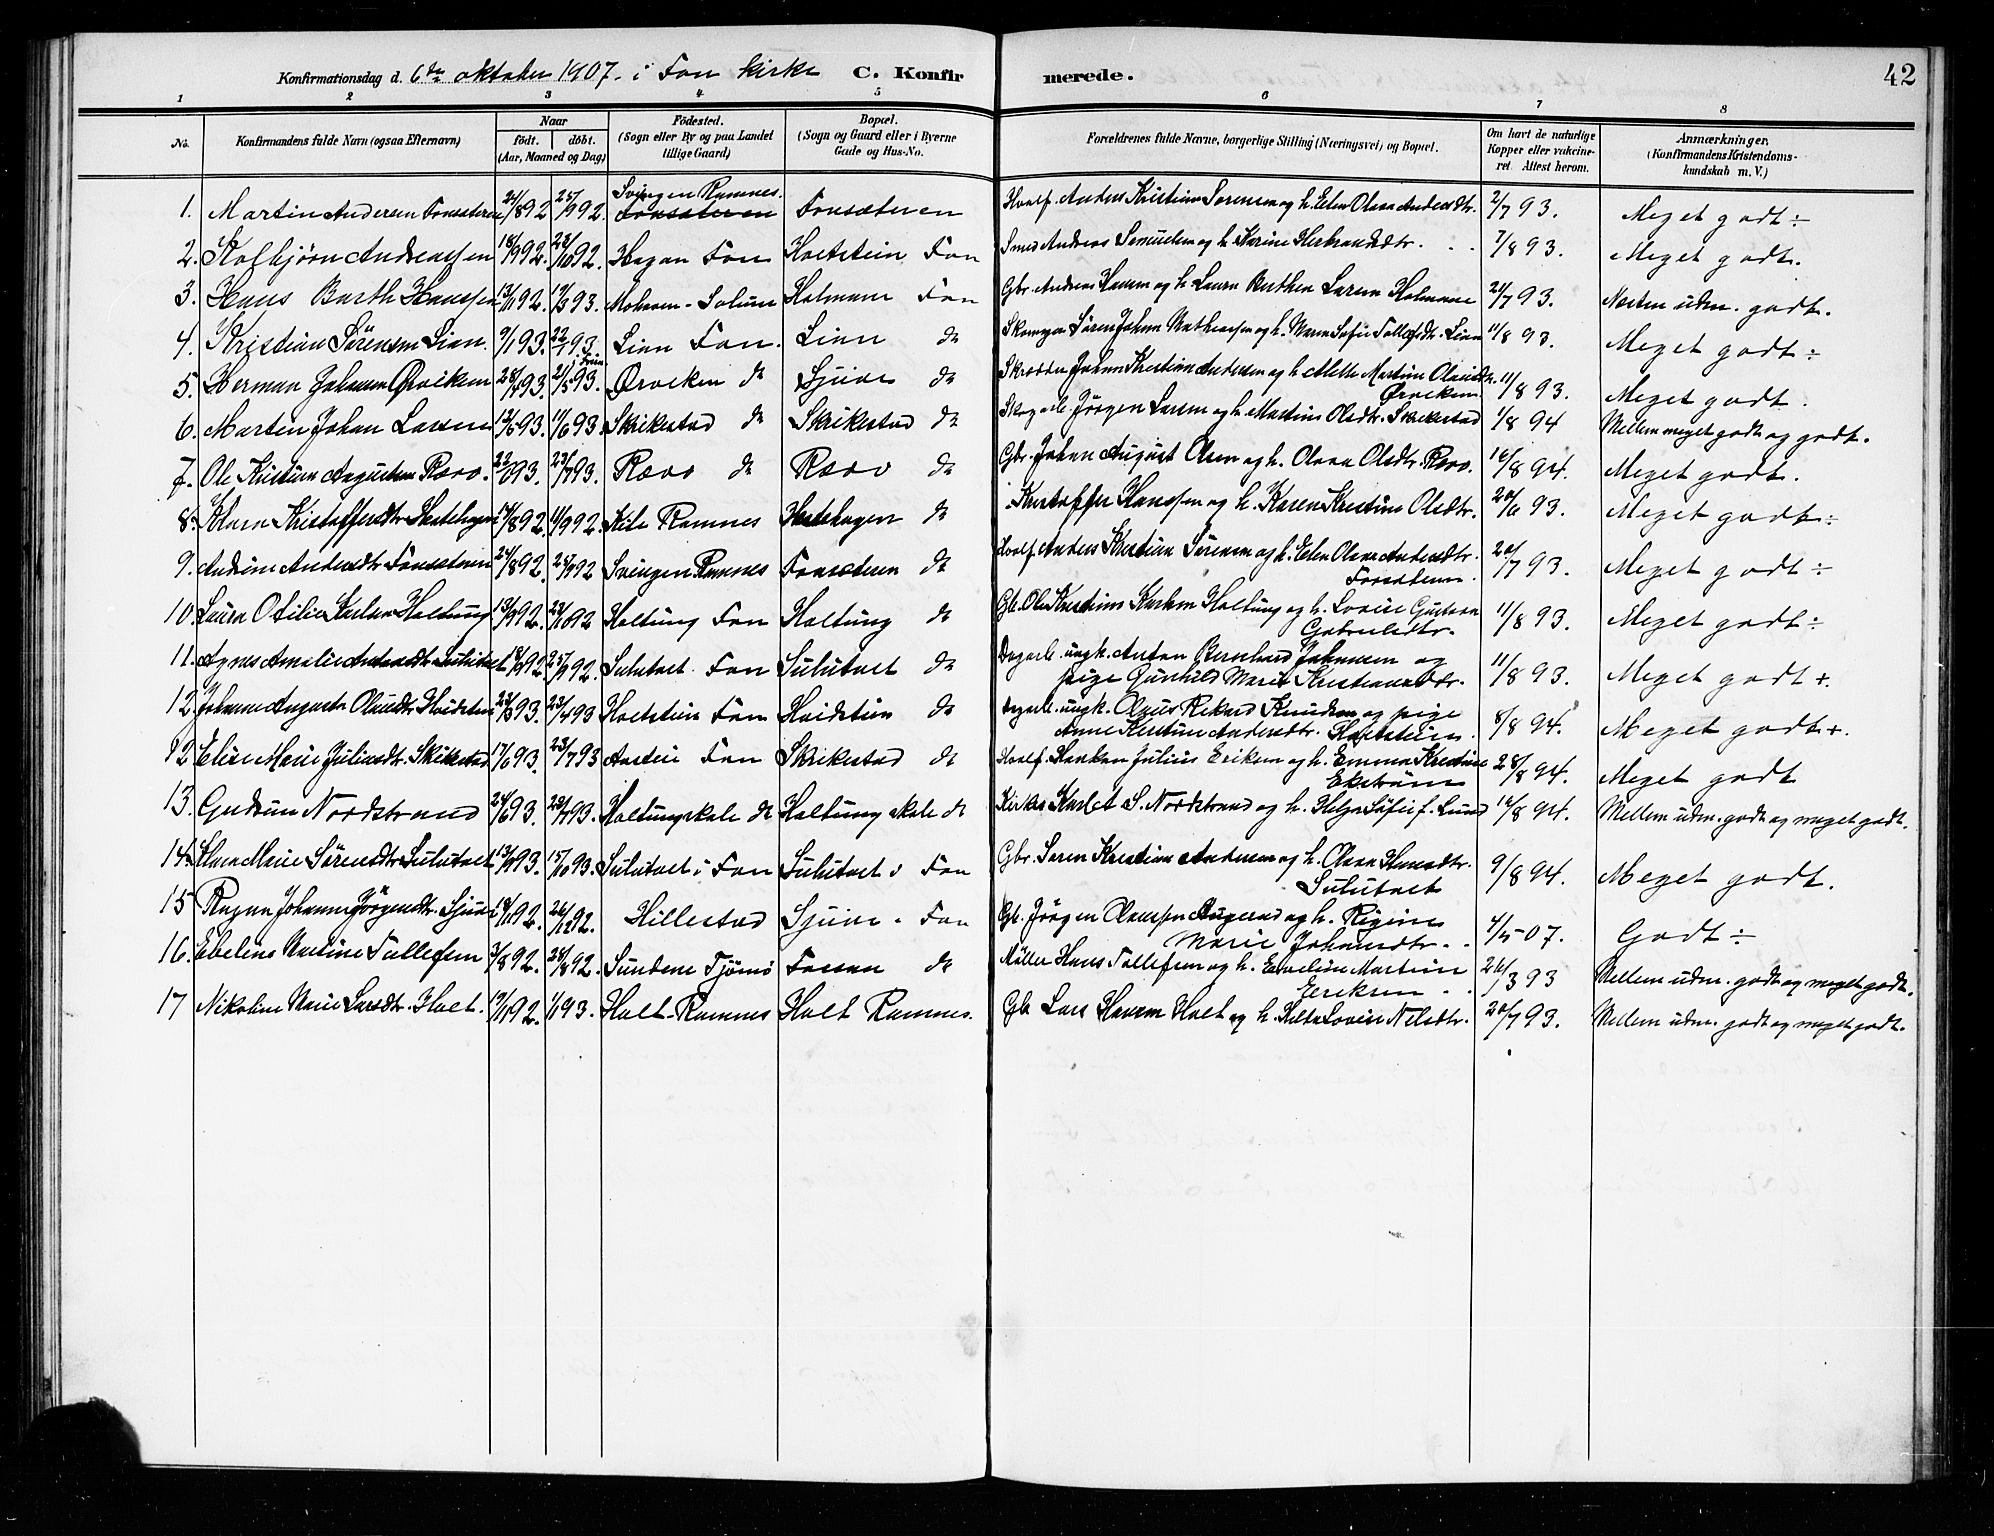 Konfirmationsdag d. 6te oktober 1907. i Fon kirke C. Konfirmerede. 42
1 2 3 4 5 6 7 8
No. Konfirmandens fulde Navn (ogsaa Efternavn) Naar födt. döbt. (Aar, Maaned og Dag) Födested. (Sogn eller By og paa Landet tillige Gaard) Bopæl. (Sogn og Gaard eller i Byerne Gade og Hus-No. Forældrenes fulde Navne, borgerlige Stilling (Næringsvei) og Bopæl. Om havt de naturlige Kopper eller vaccineret. Attest herom. Anmærkninger. (Konfirmandens Kristendomskundskab m. V.)
Svingen Ramnes.
1. Martin Andersen Fonsæteren 24/892 25/992. Fonsæteren Fonsæteren Hvalf. Anders Kristian Sørensen og h. Elen Olava Andersdtr. 2/793. Meget godt ÷
2. Kolbjørn Andreassen 18/992. 23/1092. Hagan Fon Hoelstein Fon Smed Andreas Samuelsen og h. Karine Herbrandsdtr. 7/893. Meget godt.
3. Hans Barth Hanssen 13/1192. 12/393. Moheim - Solum Holmane Fon Gbr. Andreas Hansen og h. Laura Larsen Holmane 24/793. Næsten udm. godt.
4. Kristian Sørensen Lian. 9/193. 22/193. Lien Fon. Lien do Søren Johan Mathiassen og h. Maren Sofie Tollefsdtr. Lien 11/893. Meget godt ÷
5. Herman Johansen Ørviken 28/493. 21/593. Ørviken do Sjuve do Skrædder Johan Kristian Andersen og h. Mette Martine Olausdtr. Ørviken 11/893. Meget godt.
6. Martin Johan Larsen 13/693. 11/693. Skrikestad do Skrikestad do Jörgen Larsen og h. Martine Olsdtr. Skrikestad 1/894 Mellem meget godt og godt.
7. Ole Kristian Augustsen Rævo. 22/693. 23/793. Rævo do Rævo do Gbr. Johan August Olsen og h. Olava Olsdtr. Rævo. 16/894. Meget godt.
8. Klara Kristoffersdtr. Hestehagen 14/892. 11/992. Kile Ramnes Hestehagen do Kristoffer Hanssen og h. Karen Kristine Olsdtr. 20/693. Meget godt ÷
9. Andrine Andersdtr. Fonsæteren 24/892. 25/992 Svingen Ramnes Fonsæteren do Hvalf. Anders Kristian Sørensen og h. Elen Olava Andersdtr. Fonsæteren. 20/793. Meget godt ÷
10. Laura Otilie Karlsen Haltung 13/992. 23/1092 Haltung Fon Haltung do Gb. Ole Kristian Karlsen Haltung og h. Lovise Gustava Gabrielsdtr. 11/893. Meget godt ÷
11. Agnes Amalie Antonsdtr. Sulutvet 18/992 25/992. Sulutvet Fon Sulutvet do Dagarb. ungk. Anton Bernhard Johansen og pige Gunhild Marie Kristiansdtr. 11/893. Meget godt +
12 Johanne Augusta Olausdtr. Hoidstein 23/293. 23/493 Hoelstein Fon Hoidstein do Dagarb. ungk. Olaus Rikard Knudsen og pige Anne Kristine Andersdtr. Hoelstein. 8/894. Meget godt +.
12 Elise Marie Juliusdtr. Skrikestad 17/693. 23/793 Aasten Fon Skrikestad do Hvalf. Haakon Julius Eriksen og h. Emma Kristine Ekstrøm 28/894. Meget godt
13. Gudrun Nordstrand 24/693. 23/793. Haltungskole do Haltung skole do Kirkes. S. Nordstrand og h. Helga Sofie f. Lund 16/894. Mellem udm. godt og meget godt.
14. Marie Sørensdtr. Sulutvet 13/993. 15/1093. Sulutvet i Fon Sulutvet i Fon Gbr. Søren Kristian Andersen og h. Olava Hansdtr. Sulutvet 9/894. Meget godt.
15 Ragna Johanne Jörgensdtr. Sjuve 18/1192. 26/1292. Hillestad Sjuve - Fon Gb. Jörgen Olaussen og h. Regine Marie Johansdtr. 4/507. Godt ÷
16. Ebeline Martine Tollefsen 3/892. 28/892. Sundene Tjømø Fossan do Møller Hans Tollefsen og h. Eveline Martine Eriksen 26/393 Mellem udm. godt og meget godt.
17 Nikoline Marie Larsdtr. Holt. 19/1192. 1/193. Holt-Ramnes Holt Ramnes. Gb. Lars Hansen Holt og h. Lovise Nilsdtr. 20/793. Mellem udm. godt og meget godt.